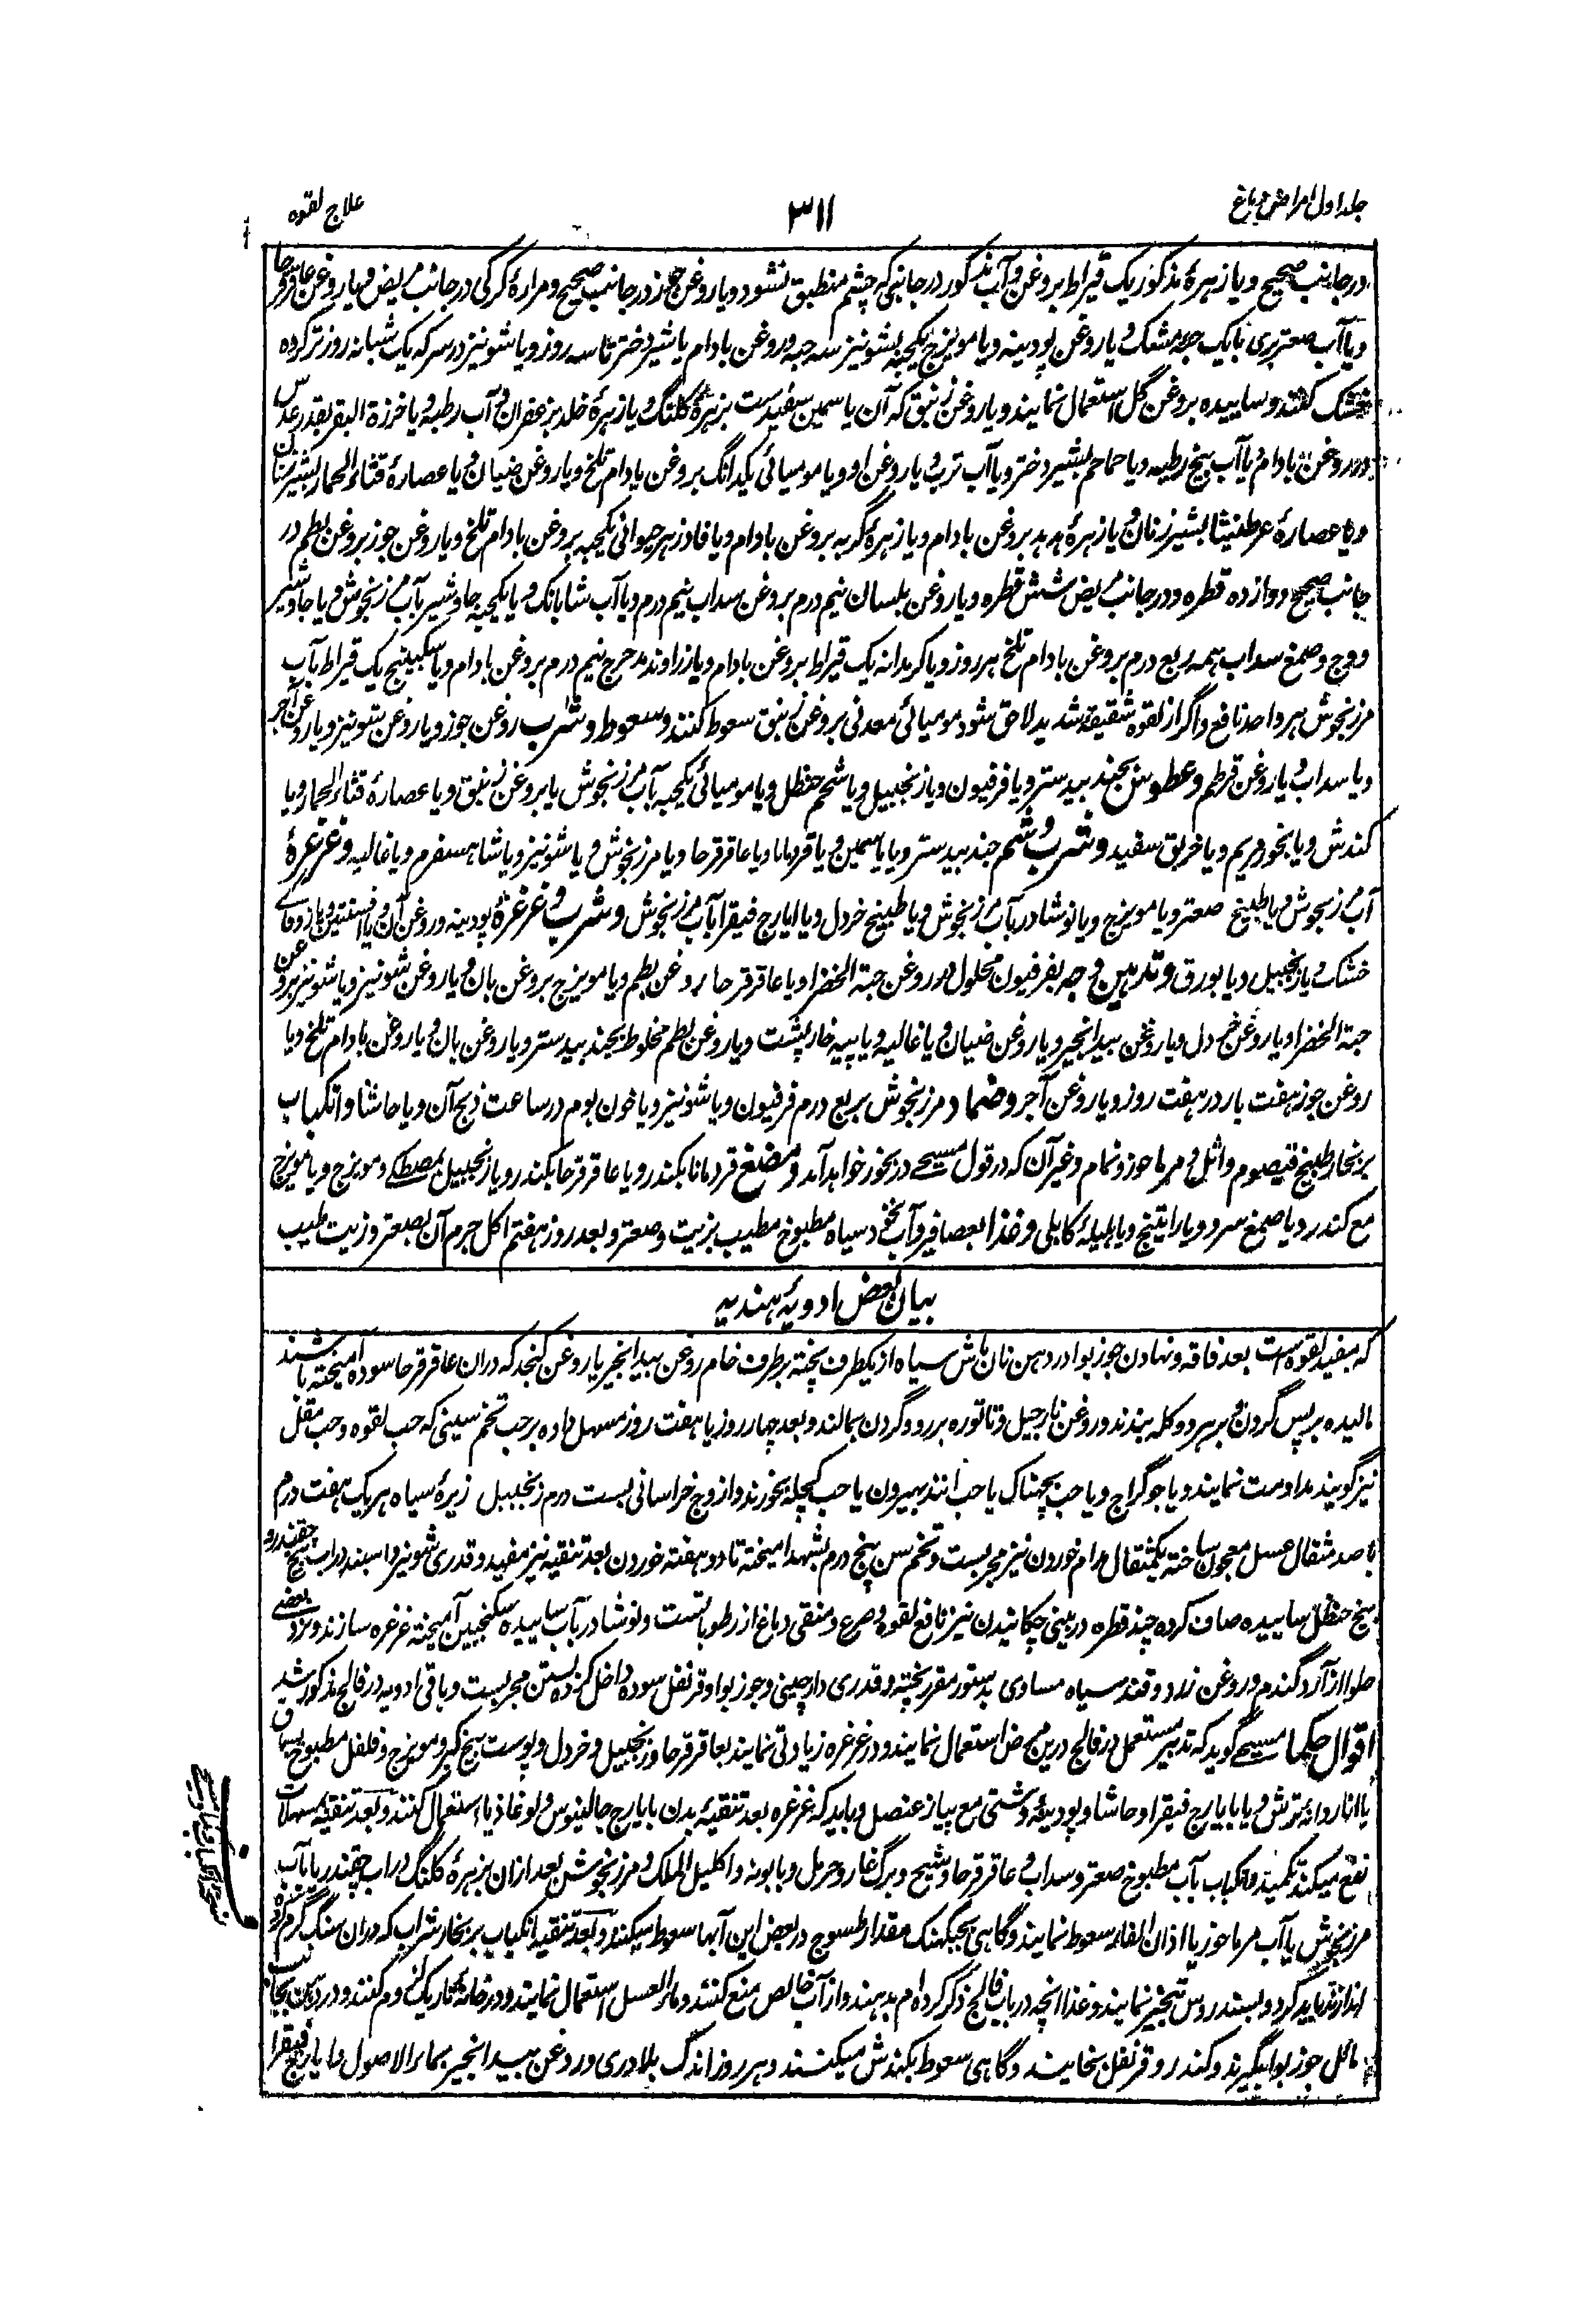 جلد اول امراض دماغ
۳۱۱
علاج لقوه
در جانب صحیح و یا زهرهٔ مذکور یک قیراط بروغن و آب مذکور در جانبی که چشم منطبق نشود و یا روغن جوز در جانب صحیح و مرارهٔ کرکی در جانب مریض و یا روغن عاقرقرحا
و یا آب صعتر بری با یک حبه مشک و یا روغن پودینه و یا مویزج یکحبه بشونیز سه حبه و روغن بادام یا شیر دختر تا سه روز و یا شونیز در سرکه یک شبانه روز تر کرده
خشک کنند و ساییده بروغن گل استعمال نمایند و یا روغن زنبق که آن یاسمین سفید ست بزهرهٔ کلنگ و یا زهرهٔ خلد بزعفران و آب رطبه و یا خرزة البقر بقدر عدس
در روغن بادام و یا آب بیخ رطبه و یا حماحم بشیر دختر و یا آب ترب و یا روغن او و یا مومیائی یکدانگ بروغن بادام تلخ و یا روغن ضیان و یا عصارهٔ قثاء الحمار بشیر زنان
و یا عصارهٔ عرطنیثا بشیر زنان و یا زهرهٔ هدهد بروغن بادام و یا زهرهٔ گربه بروغن بادام و یا فادزهر حیوانی یکحبه بروغن بادام تلخ و یا روغن جوز بروغن بطم در
جانب صحیح دوازده قطره و در جانب مریض شش قطره و یا روغن بلسان نیم درم بروغن سداب نیم درم و یا آب شابانک و یا یکحبه جاوشیر بآب مرزنجوش و یا جاوشیر
و وج و صمغ سداب همه ربع درم بروغن بادام تلخ هر روز و یا کرمدانه یک قیراط بروغن بادام و یا زراوند مدحرج نیم درم بروغن بادام و یا سکبینج یک قیراط بآب
مرزنجوش هر واحد نافع و اگر از لقوه شقیقهٔ شدید لاحق شود مومیائی معدنی بروغن زنبق سعوط کنند و سعوط و شرب روغن جوز و یا روغن شونیز و یا روغن آجر
و یا سداب و یا روغن قرطم و عطوس بجند بیدستر و یا فرفیون و یا زنجبیل و یا شحم حنظل و یا مومیائی یکحبه بآب مرزنجوش یا بروغن زنبق و یا عصارهٔ قثاء الحمار و یا
کندش و یا بخور مریم و یا خربق سفید و شرب و شم جند بیدستر و یا یاسمین و یا قردمانا و یا عاقرقرحا و یا مرزنجوش و یا شونیز و یا شاهسفرم و یا غالیه و غرغرهٔ
آب مرزنجوش و یا طبیخ صعتر و یا مویزج و یا نوشادر بآب مرزنجوش و یا طبیخ خردل و یا ایارج فیقرا بآب مرزنجوش و شرب و غرغرهٔ پودینه و روغن آن و یا افسنتین و یا زوفای
خشک و یا زنجبیل و یا بورق و تدهین وجه بفرفیون محلول در روغن حبة الخضرا و یا عاقرقرحا بروغن بطم و یا مویزج بروغن بان و یا روغن شونیز و یا شونیز بروغن
حبة الخضرا و یا روغن خردل و یا روغن بیدانجیر و یا روغن ضیان و یا غالیه و یا پیه خارپشت و یا روغن بطم مخلوط بجند بیدستر و یا روغن بان و یا روغن بادام تلخ و یا
روغن جوز هفت بار در هفت روز و یا روغن آجر و ضماد مرزنجوش بربع درم فرفیون و یا شونیز و یا خون بوم در ساعت ذبح آن و یا حاشا و انکباب
بر بخار طبیخ قیصوم و اثل و مرماحوز و نمام و غیر آن که در قول مسیحی در بخور خواهد آمد و مضغ قردمانا بکندر و یا عاقرقرحا بکندر و یا زنجبیل بمصطکی و مویزج و یا مویزج
مع کندر و یا صمغ سرو و یا راتینج و یا هلیلهٔ کابلی و غذا بعصافیر و آب نخود سیاه مطبوخ مطیب بزیت و صعتر و بعد روز هفتم اکل جرم آن بصعتر و زیت طیب
بیان بعض ادویهٔ هندیه
که مفید لقوه است بعد فاقه و نهادن جوزبوا در دهن نان ماش سیاه از یکطرف پخته بر طرف خام روغن بیدانجیر یا روغن کنجد که دران عاقرقرحا سوده آمیخته باشند
مالیده بر پس گردن و بر هر دو کله بندند و روغن نارجیل و تاتوره بر رو و گردن بمالند و بعد چهار روز یا هفت روز مسهل داده بر حب تخم سینی که حب لقوه و حب مقل
نیز گویند مداومت نمایند و یا جوگراج و یا حب بچناک یا حب انند بهیرون یا حب کچله بخورند و از وج خراسانی بست درم زنجبیل زیرهٔ سیاه هر یک هفت درم
با صد مثقال عسل معجون ساخته یکمثقال مدام خوردن نیز مجربست و تخم سن پنج درم بشهد آمیخته تا دو هفته خوردن بعد تنقیه نیز مفید و قدری شونیز و اسبند در آب بیخ چقندر و
بیخ حنظل ساییده صاف کرده چند قطره در بینی چکانیدن نیز نافع لقوه و صرع و منقی دماغ از رطوباتست و نوشادر بآب ساییده سکنجبین آمیخته غرغره سازند و نزد بعضی
حلوا از آرد گندم و روغن زرد و قند سیاه مساوی بدستور مقرر پخته و قدری دارچینی و جوزبوا و قرنفل سوده داخل کرده بستن مجربست و باقی ادویه در فالج مذکور شد
اقوال حکما مسیحی گوید که تدبیر مستعمل در فالج درین مرض استعمال نمایند و در غرغره زیادتی نمایند بعاقرقرحا و زنجبیل و خردل و پوست بیخ کبر و مویزج و فلفل مطبوخ بسماق
یا انار دانهٔ ترش و یا بایارج فیقرا و حاشا و پودینهٔ دشتی مع پیاز عنصل و باید که غرغره بعد تنقیهٔ بدن بایارج جالینوس و لوغاذیا استعمال کنند و بعد تنقیه بمسهلات
نفع میکند تکمید و انکباب بآب مطبوخ صعتر و سداب و عاقرقرحا و شیح و برگ غار و حرمل و بابونه و اکلیل الملک و مرزنجوش بعد ازان بزهرهٔ کلنگ در آب چقندر یا بآب
مرزنجوش یا آب مرماحوز یا اذان الفار سعوط نمایند و گاهی مقدار طسوج در بعض این آبها سعوط میکنند و بعد تنقیه انکباب بر بخار شراب که دران سنگ گرم کرده
انداخته باید کرد و بسندروس تبخیر نمایند و غذا انچه در باب فالج ذکر کرده ام بدهند و از آب خالص منع کنند و ماء العسل استعمال نمایند و در خانهٔ تاریک لزوم کنند و در دهن بجانب
مائل جوزبوا بگیرند و کندر و قرنفل بخایند و گاهی سعوط بکندش میکنند و هر روز اندک بلادری و روغن بیدانجیر بماء الاصول و ایارج فیقرا